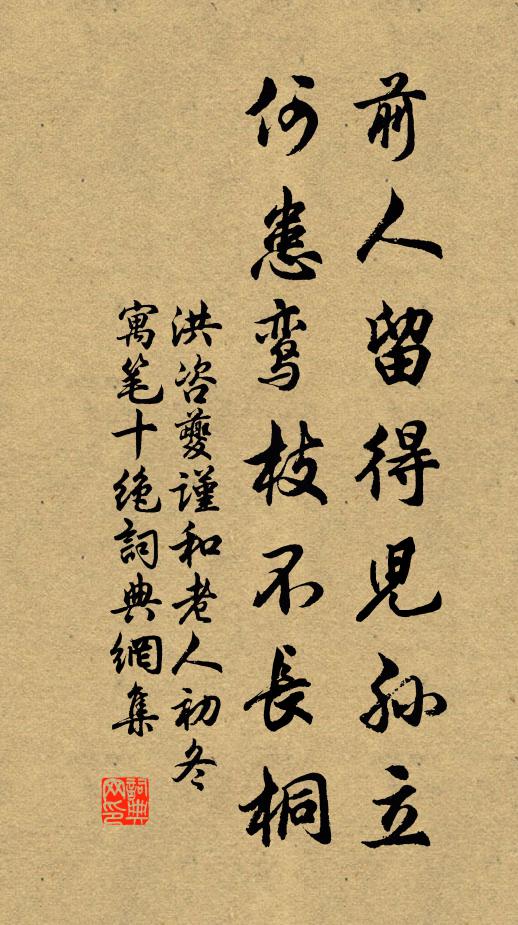 前人留得児孫立
何患鸾枝不長桐
洪咨夔謹和老人初冬
寓笔十绝詞典網集
詞典
网印